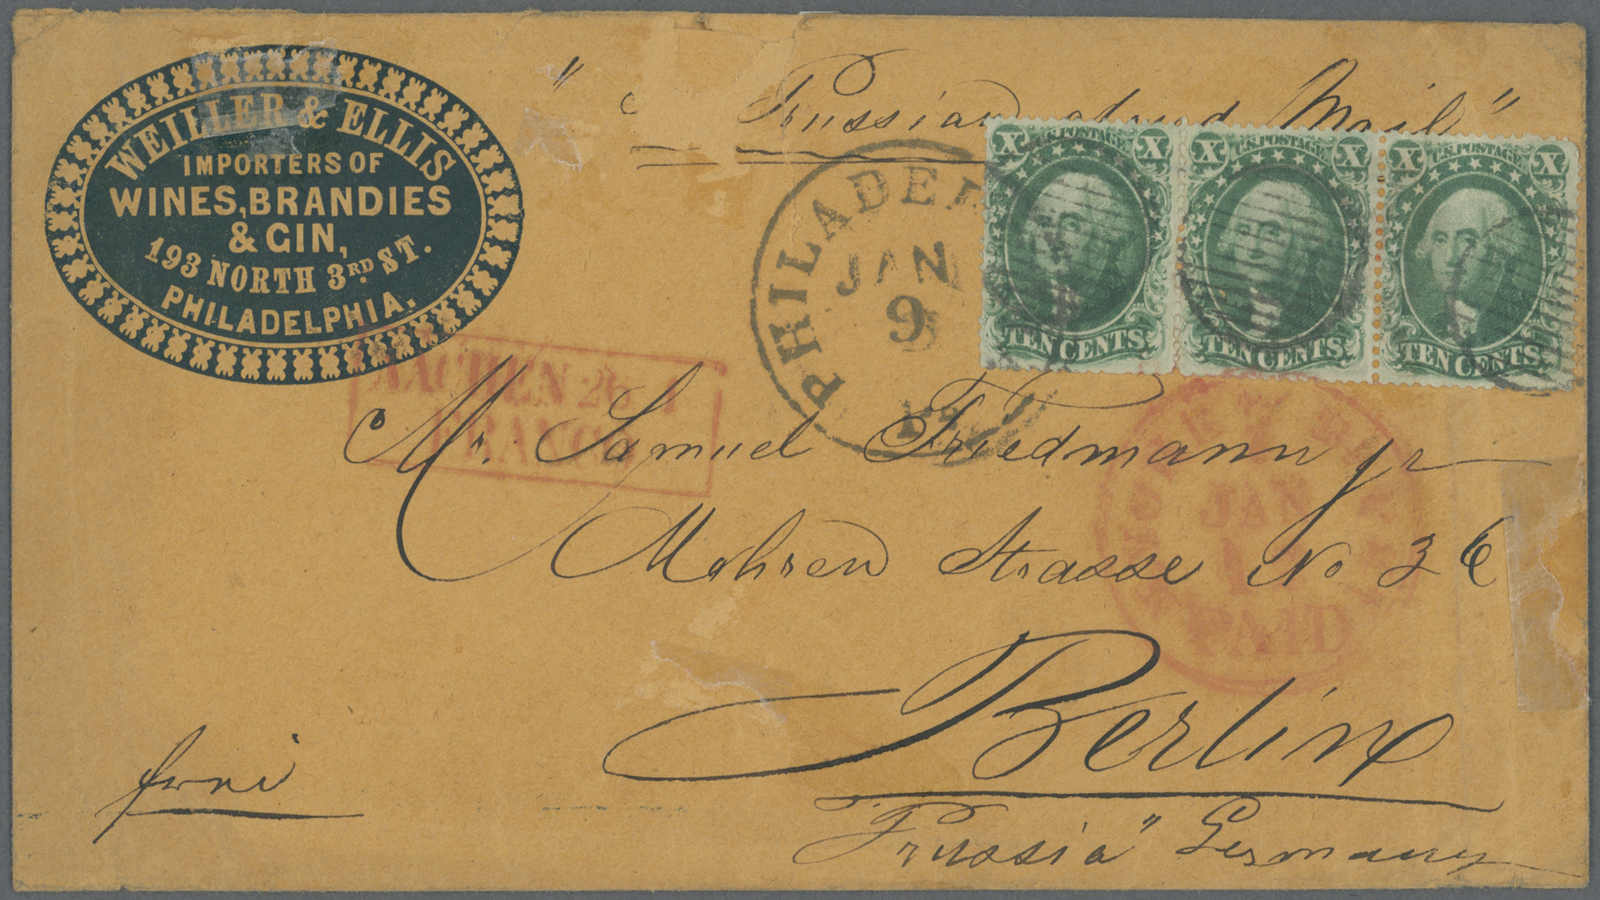 WEILLER & ELLIS
IMPORTERS OF
WINES, BRANDIES
& GIN,
193 NORTH 3RD ST.
PHILADELPHIA.
" Prussian closed Mail"
PHILADEL
JAN
9
X U.S. POSTAGE X
TEN CENTS.
X U.S. POSTAGE X
TEN CENTS.
X U.S. POSTAGE X
TEN CENTS.
AACHEN 26 1
FRANCO
Mr. Samuel Friedmann jr
Mohren Strasse No 36
JAN
PAID
Berlin
frei
"Prussia" Germany